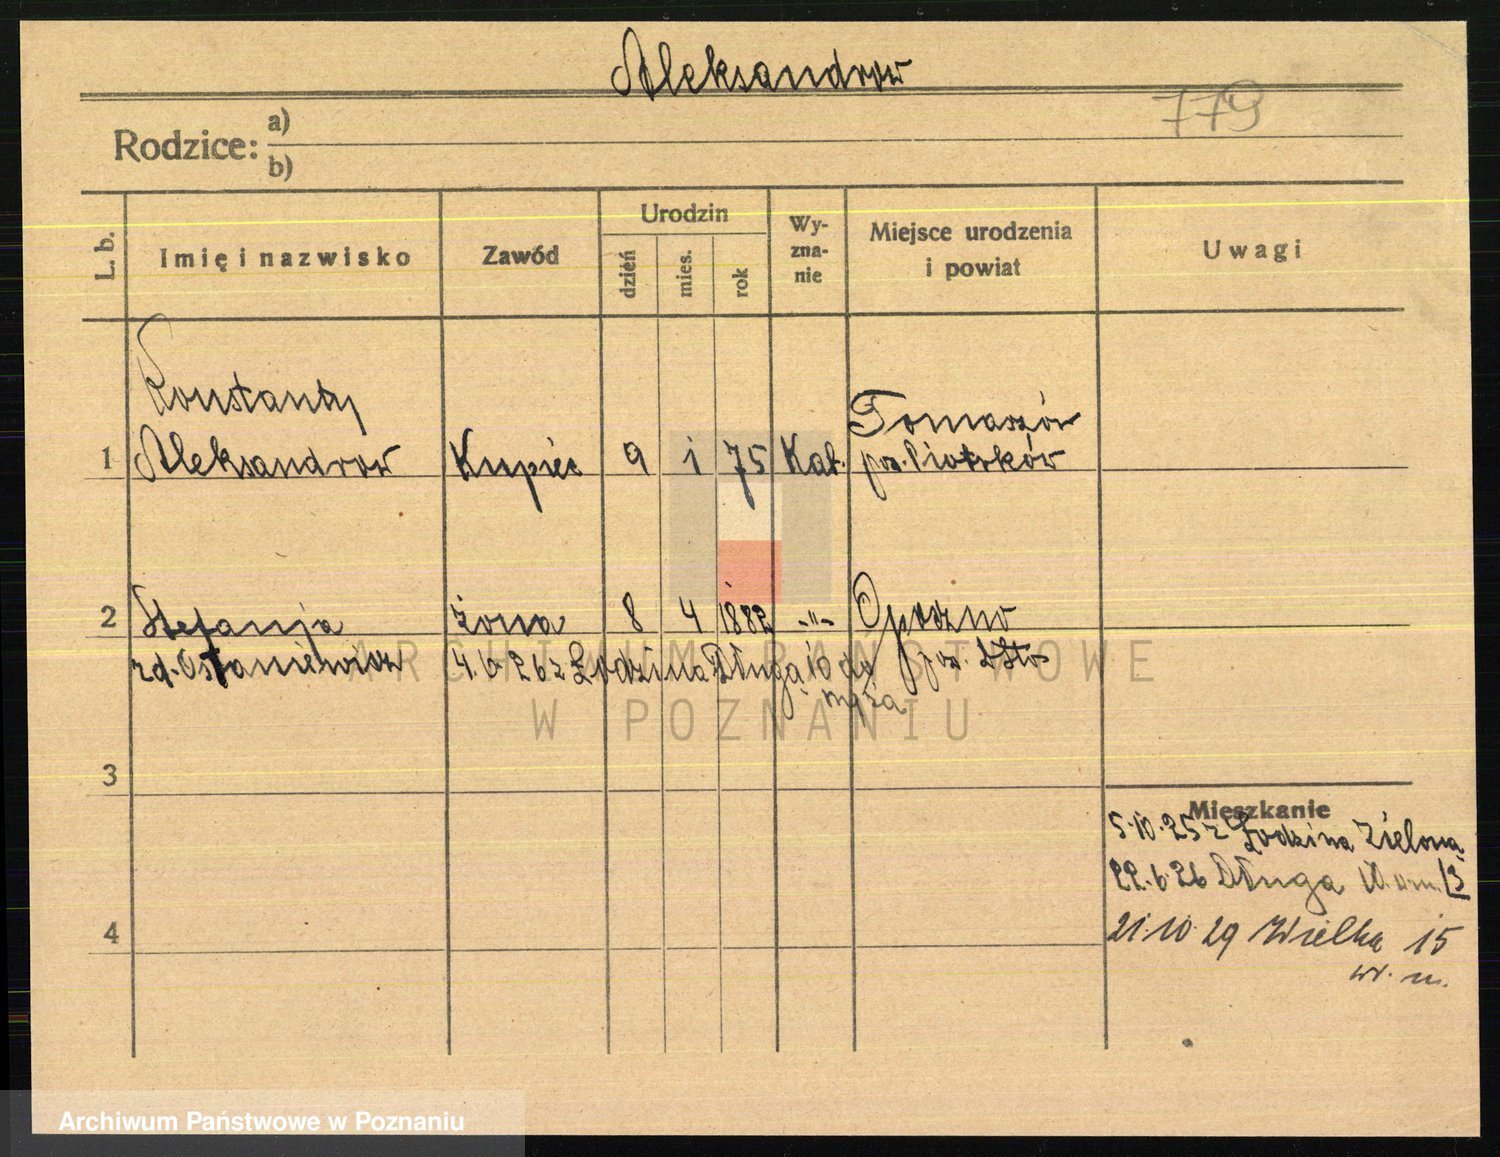 Aleksandrow
779
Rodzice: a)
b)
L. b.
Imię i nazwisko
Zawód
Urodzin
dzień
mies.
rok
Wy-
zna-
nie
Miejsce urodzenia
i powiat
Uwagi
Konstanty
1 Aleksandrow Kupiec 9 1 75 Kat. Tomaszów
pow. Piotrków
2 Stefanja żona 8 4 1882 -"- Opoczno
rd. Ostaniewicz 4.6.26 z Łodzi na Długą 10 do
męża
3
Mieszkanie
5.10.25 z Łodzi na Zieloną
22.6.26 Długa 10. w m. 13
4
21.10 29 Wielka 15
w. m.
ARCHIWUM PAŃSTWOWE
W POZNANIU
Archiwum Państwowe w Poznaniu